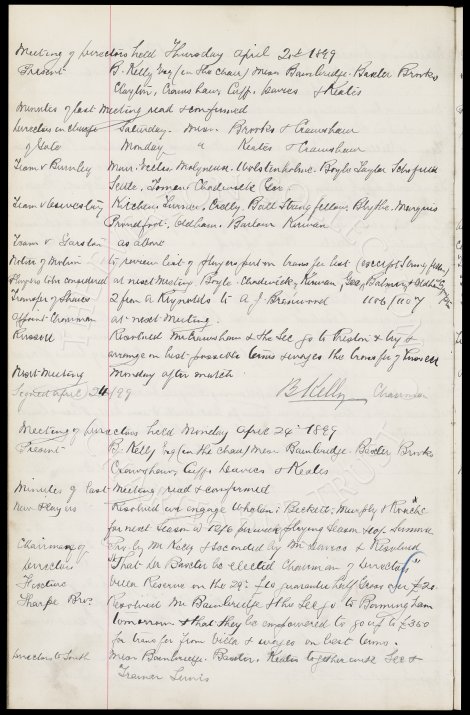 Meeting of Directors held Thursday April 20th 1899
Present B. Kelly Esq (in the chair) Messrs Bainbridge. Baxter Brooks
Clayton, Crawshaw, Cuff, Leavies & Keates
Minutes of last Meeting read & confirmed
Directors in charge Saturday. Messrs. Brooks & Crawshaw
of Gate Monday " Keates & Crawshaw
Team v Burnley Muir. Molyneux. Wolstenholme. Boyle Taylor Schofield
Settle. Toman. Chadwick Gee.
Team v Kitchen Turner. Crelly. Ball Strongfellow. Blythe. Marquis
Proudfoot. Oldham. Barlow Kirwan
Team v Garston as above
Notice of Motion to review list of players put on transfer list (except Strongfellow)
Players to be considered at next Meeting Boyle. Chadwick. Kirwan Gee, Balmer, Oldham
Transfer of Shares 2 from A Reynolds to A J Brenwood 1106/1107
Appoint Chairman at next Meeting.
Russell Resolved Mr Crawshaw & the Sec go to Preston & try &
arrange on best possible terms & wages the transfer of Russell
Next Meeting Monday after match
Signed April 24/99 B Kelly Chairman
Meeting of Directors held Monday April 24th 1899
Present B. Kelly Esq (in the chair) Messrs Bainbridge. Baxter Brooks
Crawshaw, Cuff Leavies & Keates
Minutes of last Meeting read & confirmed
New Players Resolved we engage Wharton; Beckett; Murphy & Roache
for next season @ 12/6 per week playing season & Summer
Chairman of Pro. by Mr Kelly & seconded by Mr Leavies & Resolved
Directors "That Dr Baxter be elected Chairman of Directors"
Fixture Villa Reserve on the 29th. £10 guarantee half Gross over £20
Sharpe Bros. Resolved Mr Bainbridge & the Sec go to Birmingham
tomorrow & that they be empowered to go up to £350
for transfer from Villa & wages on best terms.
Directors to South Messrs Bainbridge. Baxter. Keates together with Sec &
Trainer Lewis